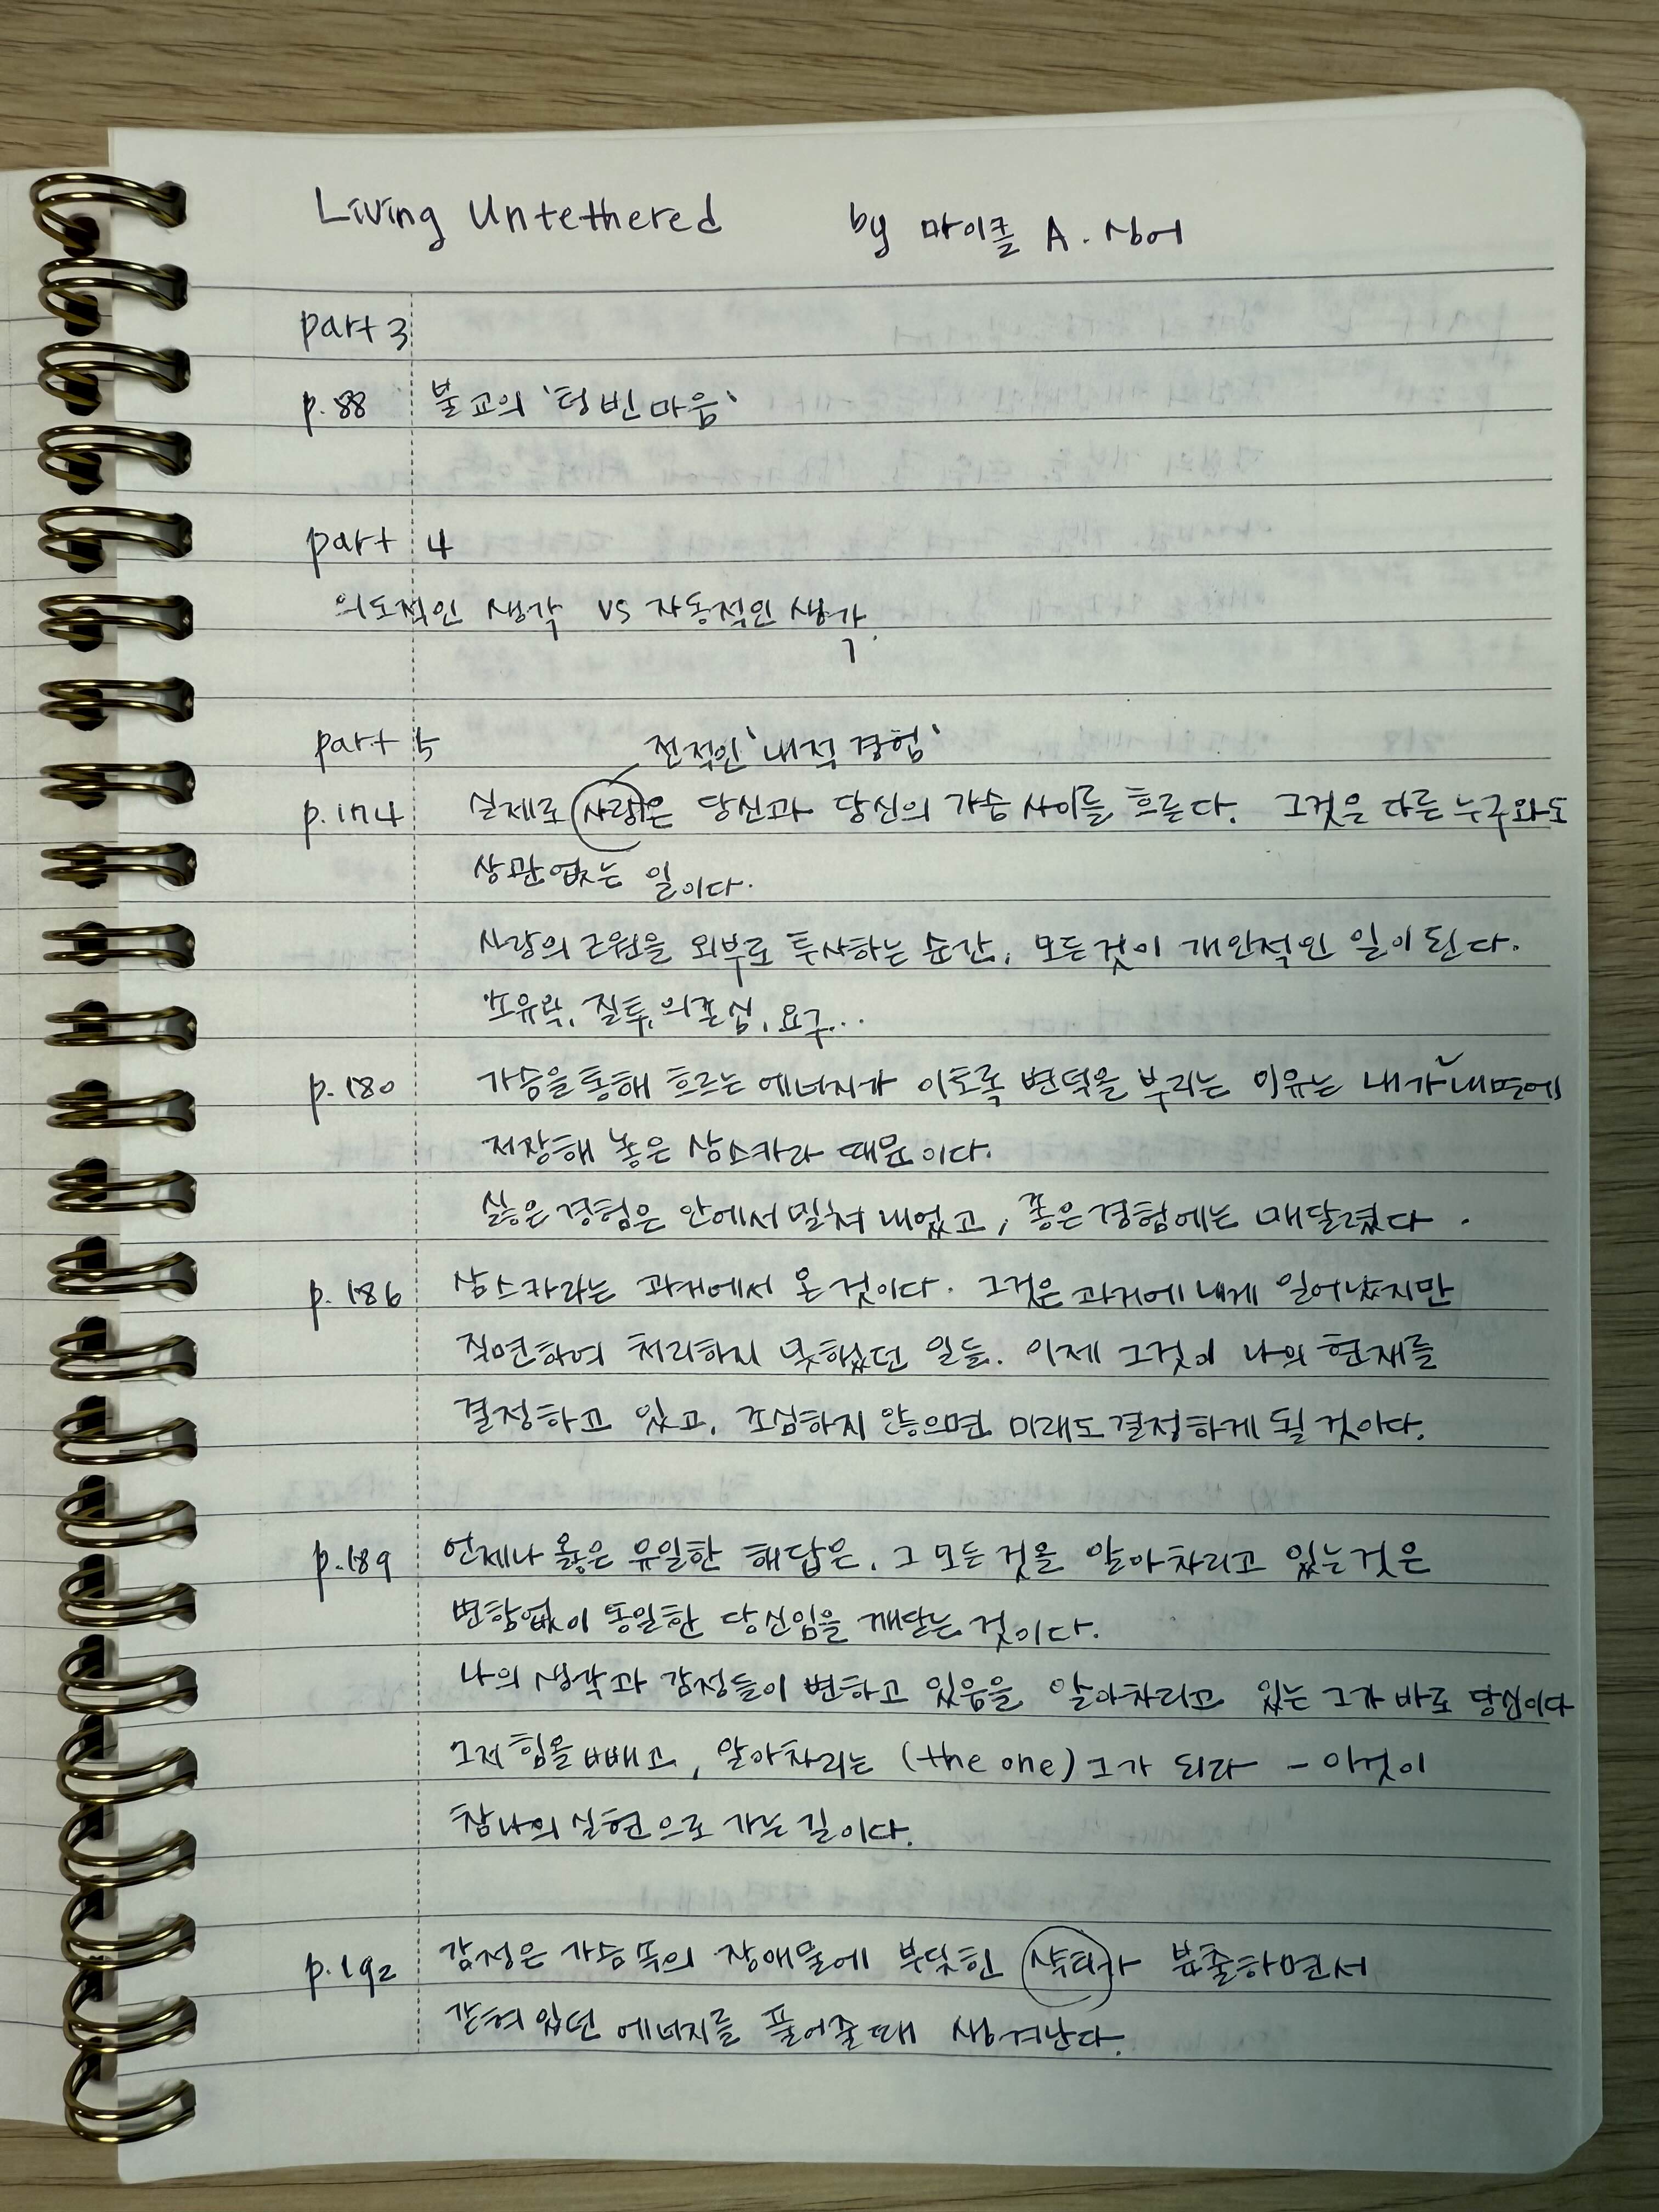 Living Untethered by 마이클 A. 싱어
part 3
p.88 불교의 '텅 빈 마음'
part 4
의도적인 생각 vs 자동적인 생각
part 5 전적인 '내적 경험'
p.174 실제로 사랑은 당신과 당신의 가슴 사이를 흐른다. 그것은 다른 누구와도
상관없는 일이다.
사랑의 근원을 외부로 투사하는 순간, 모든것이 개인적인 일이 된다.
소유욕, 질투, 의존심, 요구...
p.180 가슴을 통해 흐르는 에너지가 이토록 변덕을 부리는 이유는 내가 내면에
저장해 놓은 삼스카라 때문이다.
싫은 경험은 안에서 밀쳐 내었고, 좋은경험에는 매달렸다.
p.186 삼스카라는 과거에서 온 것이다. 그것은 과거에 내게 일어났지만
직면하여 처리하지 못했던 일들. 이제 그것이 나의 현재를
결정하고 있고, 조심하지 않으면 미래도 결정하게 될 것이다.
p.189 언제나 옳은 유일한 해답은, 그 모든 것을 알아차리고 있는 것은
변함없이 동일한 당신임을 깨닫는 것이다.
나의 생각과 감정들이 변하고 있음을 알아차리고 있는 그가 바로 당신이다
그저 힘을 빼고, 알아차리는 (the one) 그가 되라 - 이것이
참나의 실현으로 가는 길이다.
p.192 감정은 가슴 쪽의 장애물에 부딪힌 샥티가 분출하면서
갇혀 있던 에너지를 풀어줄 때 생겨난다.